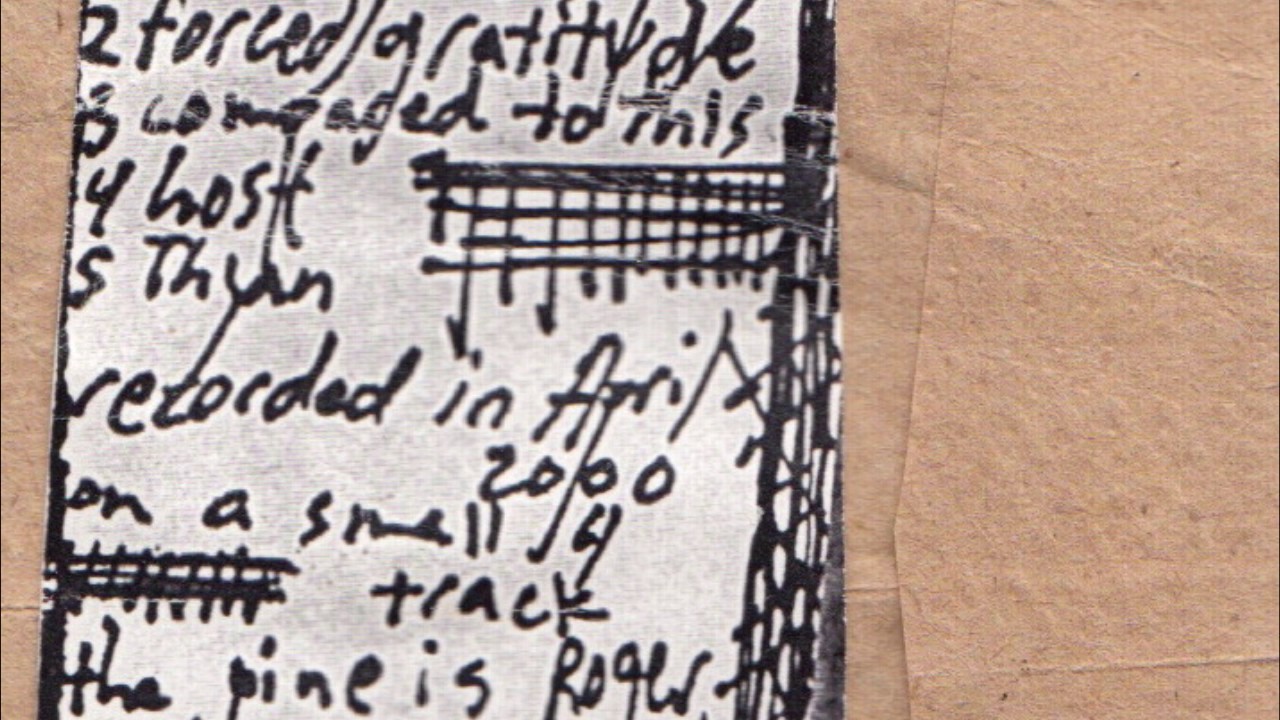 2 forced gratitude
3 compaged to this
4 host
5 Thyan
recorded in April
2000
on a small 4
track
the pine is Roger